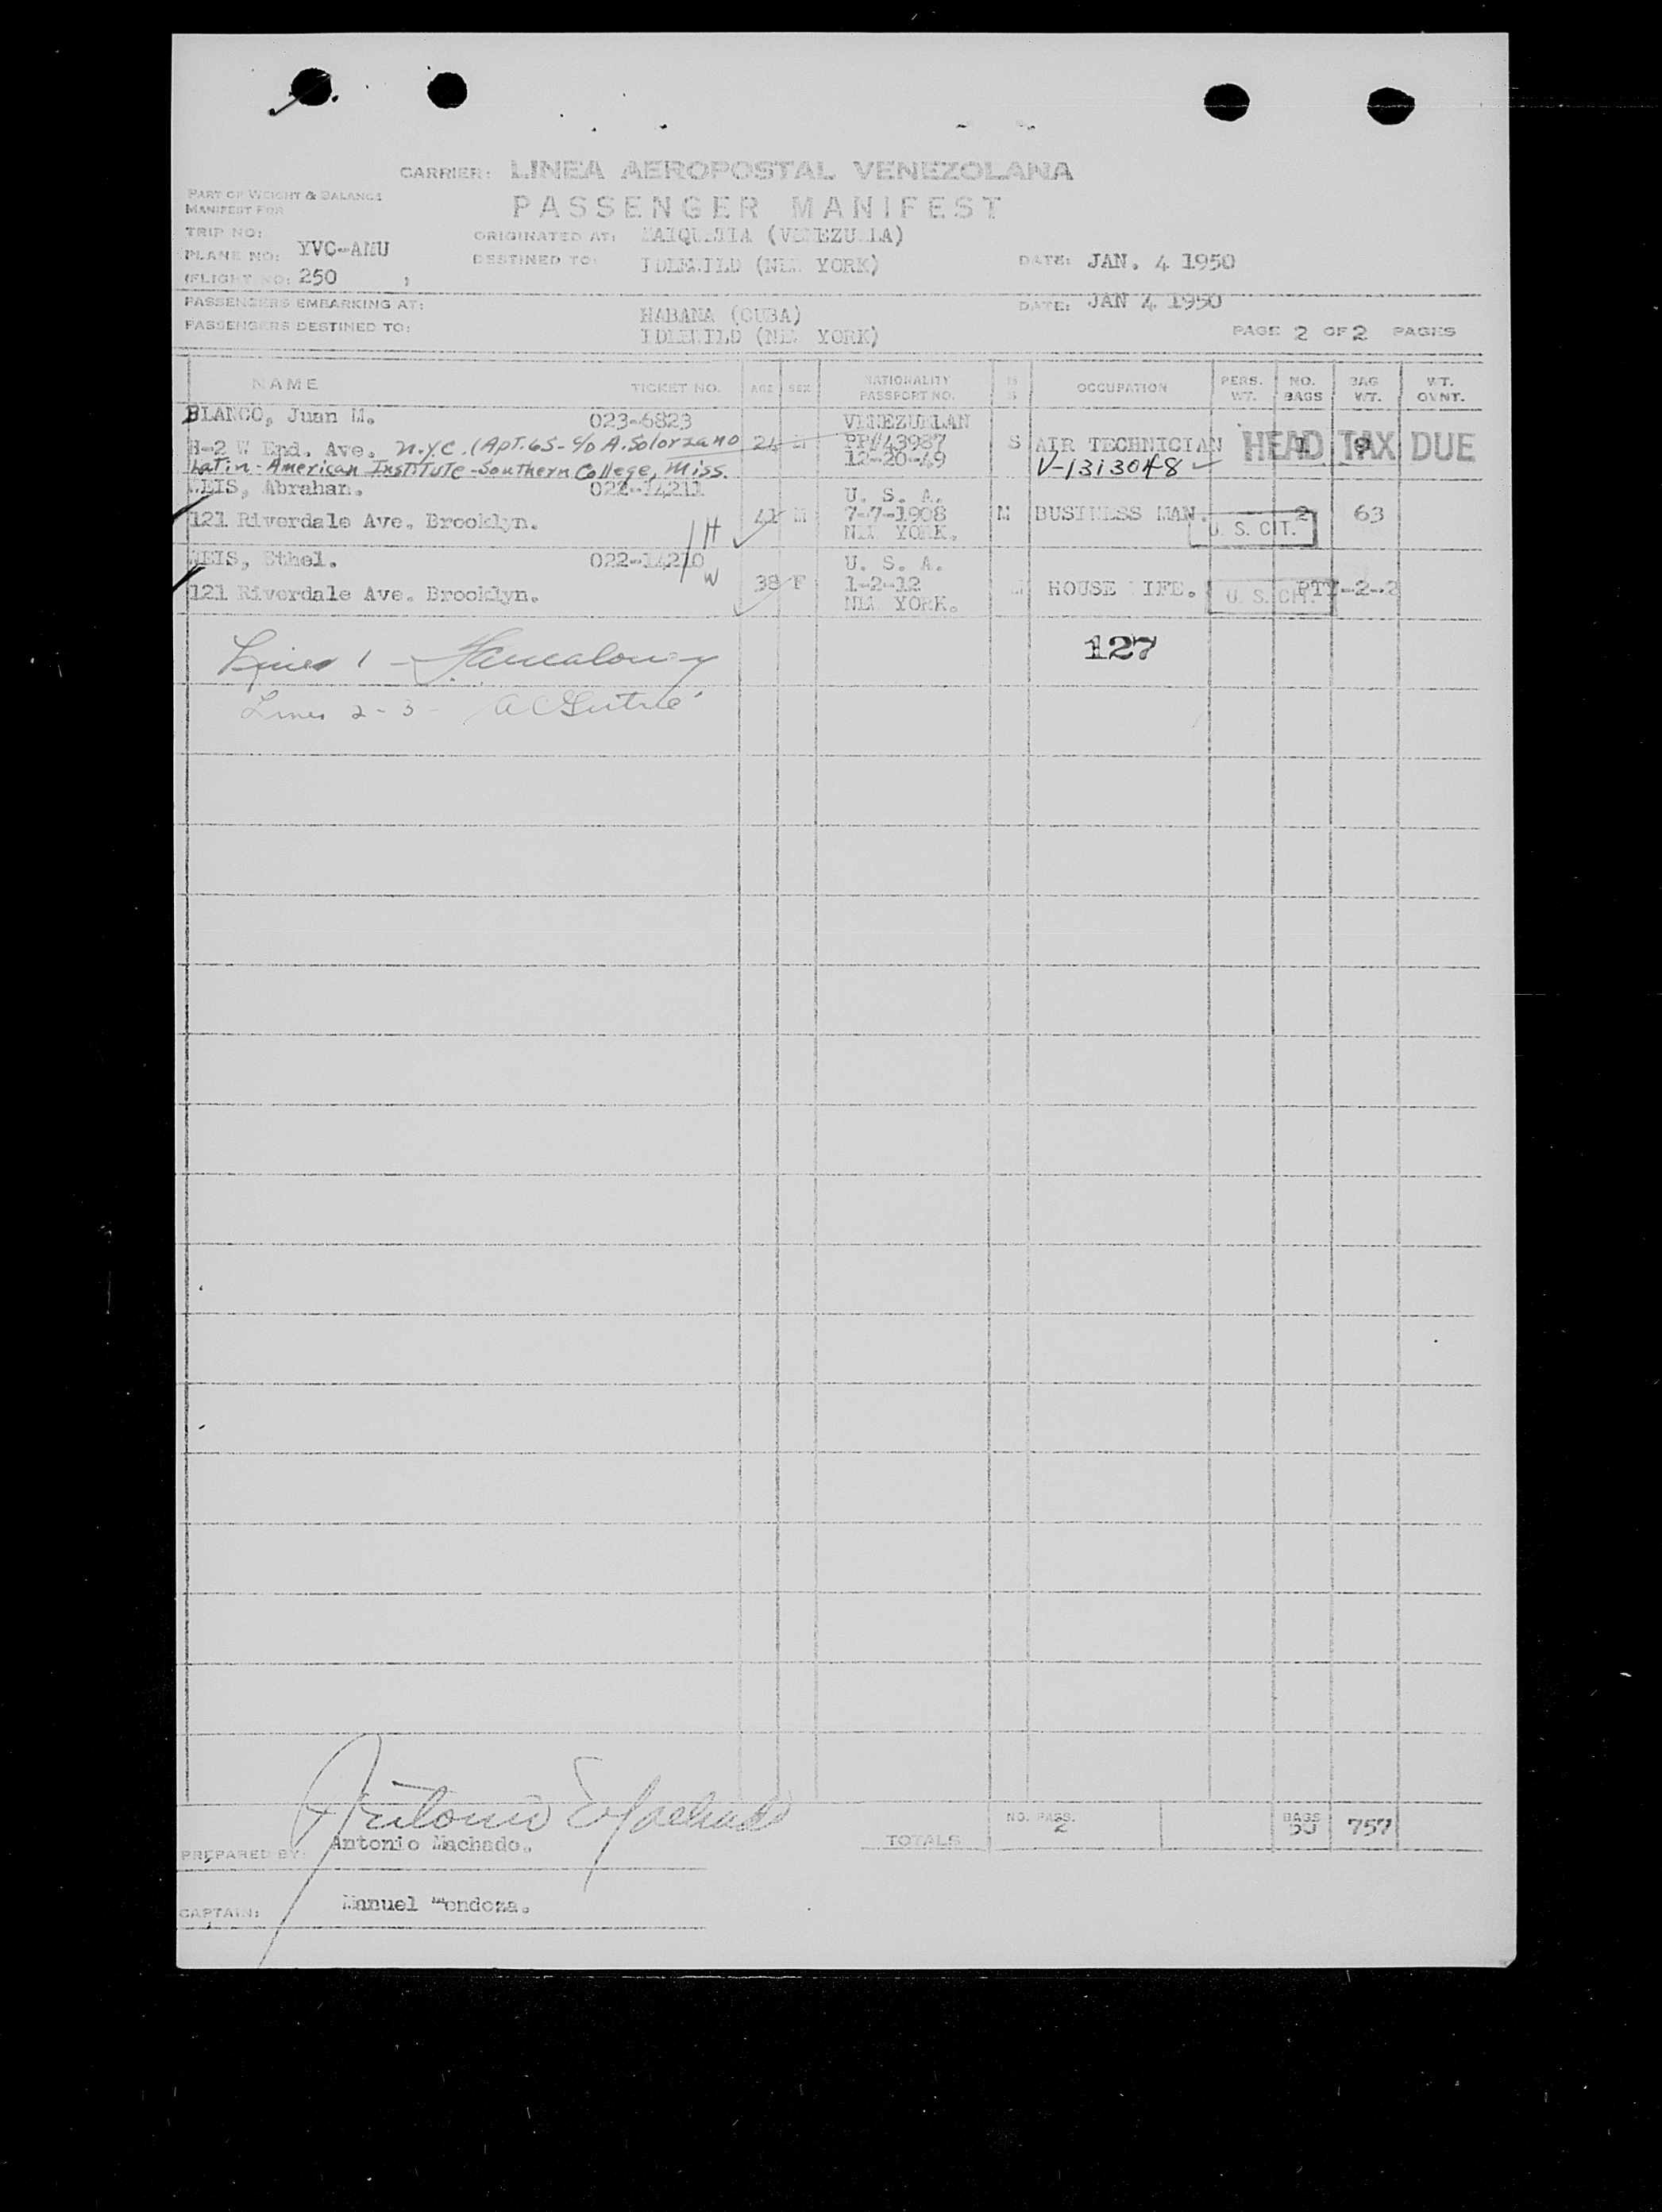 CARRIER: LINEA AEROPOSTAL VENEZOLANA
PART OF WEIGHT & BALANCE
MANIFEST FOR
PASSENGER MANIFEST
TRIP NO:
ORIGINATED AT: MAIQUETIA (VENEZUELA)
PLANE NO: YVC-AMU
DESTINED TO: IDLEWILD (NEW YORK)
DATE: JAN. 4 1950
(FLIGHT NO: 250 )
PASSENGERS EMBARKING AT: HABANA (CUBA)
DATE: JAN 4 1950
PASSENGERS DESTINED TO: IDLEWILD (NEW YORK)
PAGE 2 OF 2 PAGES
NAME TICKET NO. AGE SEX NATIONALITY PASSPORT NO. M S OCCUPATION PERS. WT. NO. BAGS BAG WT. WT. OVNT.
BLANCO, Juan M. 023-6823 VENEZUELAN
H-2 W End. Ave. N.Y.C. (Apt. 65 - c/o A. Solorzano 24 M PP#43987 S AIR TECHNICIAN 1 9 HEAD TAX DUE
12-20-49 V-1313048
Latin-American Institute - Southern College, Miss.
WEIS, Abrahan. 022-14211 U. S. A.
121 Riverdale Ave. Brooklyn. H 41 M 7-7-1908 M BUSINESS MAN. 2 63
NEW YORK. U. S. CIT.
WEIS, Ethel. 022-14210 U. S. A.
W
121 Riverdale Ave. Brooklyn. 38 F 1-2-12 M HOUSE WIFE. U. S. CIT. PTY-2-2
NEW YORK.
Lines 1 -
127
Lines 2-3 -
Antonio Machado
NO. PASS. 2 BAGS 757
TOTALS
PREPARED BY: Antonio Machado.
CAPTAIN: Manuel Mendoza.